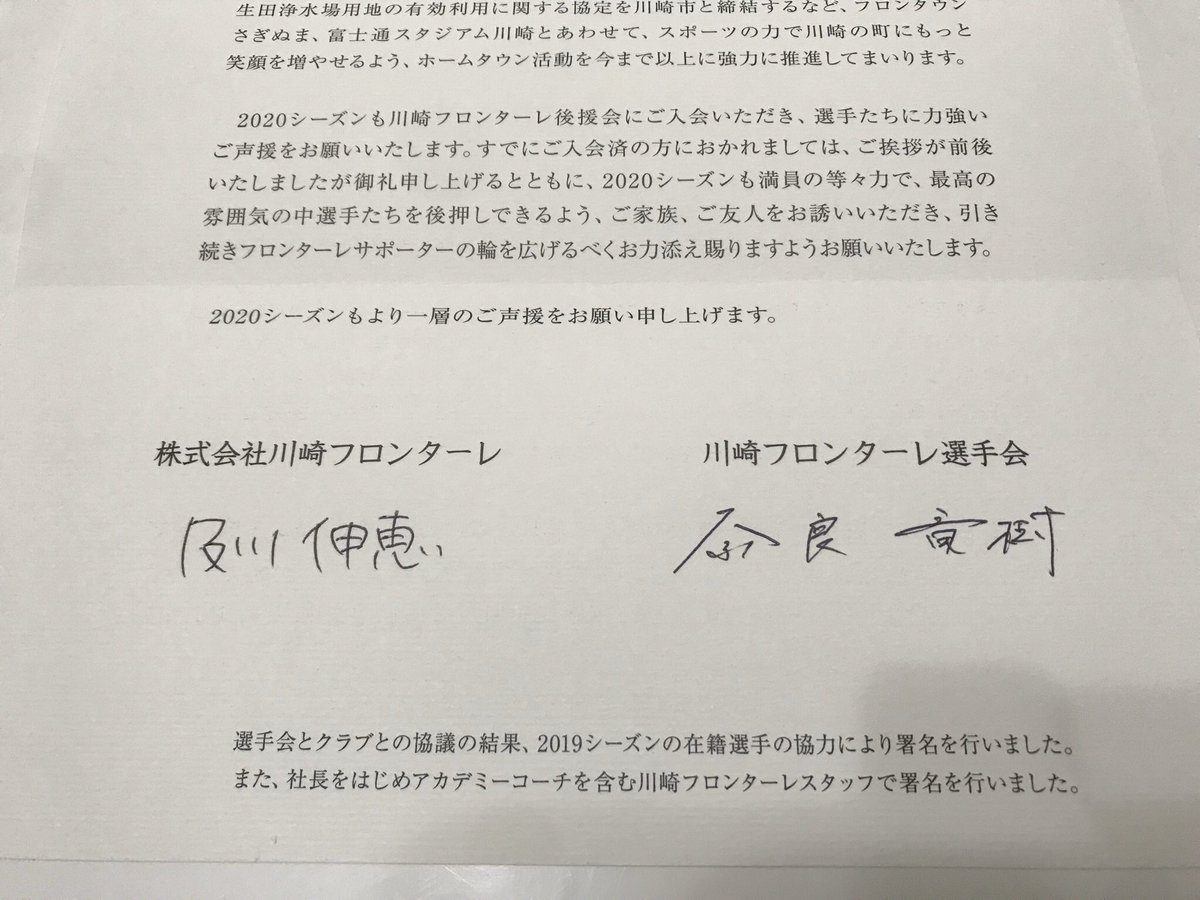 生田浄水場用地の有効利用に関する協定を川崎市と締結するなど、フロンタウン
さぎぬま、富士通スタジアム川崎とあわせて、スポーツの力で川崎の町にもっと
笑顔を増やせるよう、ホームタウン活動を今まで以上に強力に推進してまいります。
2020シーズンも川崎フロンターレ後援会にご入会いただき、選手たちに力強い
ご声援をお願いいたします。すでにご入会済の方におかれましては、ご挨拶が前後
いたしましたが御礼申し上げるとともに、2020シーズンも満員の等々力で、最高の
雰囲気の中選手たちを後押しできるよう、ご家族、ご友人をお誘いいただき、引き
続きフロンターレサポーターの輪を広げるべくお力添え賜りますようお願いいたします。
2020シーズンもより一層のご声援をお願い申し上げます。
株式会社川崎フロンターレ
川崎フロンターレ選手会
及川 伸恵
奈良 竜樹
選手会とクラブとの協議の結果、2019シーズンの在籍選手の協力により署名を行いました。
また、社長をはじめアカデミーコーチを含む川崎フロンターレスタッフで署名を行いました。